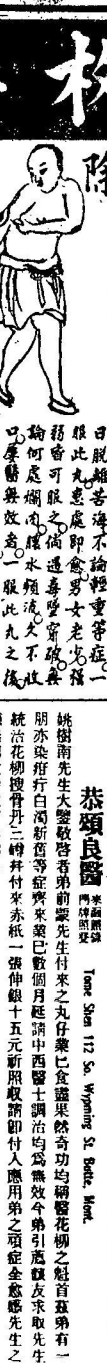 除
日脫離苦海不論輕重等症一
服此丸患處即愈男女老少強
弱皆可服之倘遇毒墜穿破無
論何處爛肉膿水頻流久不收
口屢醫無效者一服此丸之後
恭頌良醫
來函照錄
門牌照登
Tome Shen 112 So. Wyoming St. Butte, Mont.
姚樹南先生大鑒敬啓者弟前蒙先生付來之丸仔藥已食盡果然奇功均稱醫花柳之魁首茲弟有一
朋亦染疳疔白濁新舊等症齊來藥已數個月延請中西醫士調治均為無效今弟引薦該友求取先生
統治花柳搜骨丹三樽并付來赤紙一張伸銀十五元祈照收請即付入應用弟之頑症全愈感先生之